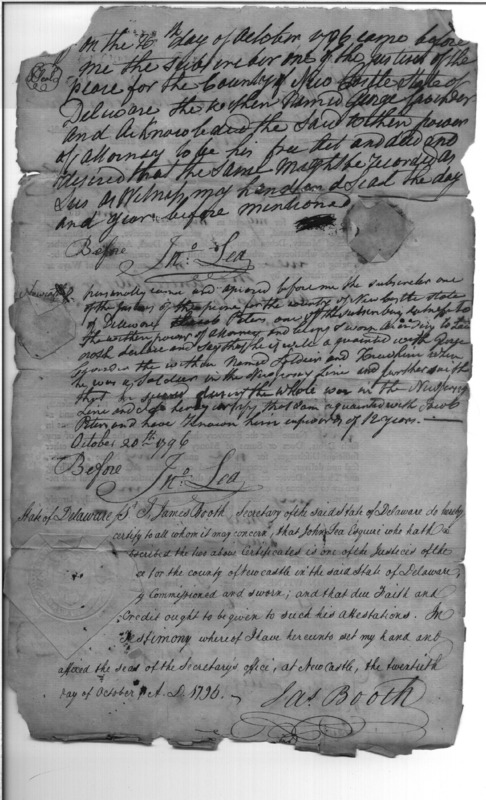 On the 20th Day of October 1796 came before
me the Subscriber one of the justices of the
peace for the County of New Castle State of
Delaware the within Named George
and Acknowledged the Said within power
of attorney to be his free Act and deed and
desired that the Same Might be Recorded as
Such as Witness my hand and Seal the day
and year before mentioned
Before Jno: Lea
personally came and before me the subscriber one
of the justices of the peace for the county of New Castle State
of Delaware Jacob Peters, one of the subscribing witness to
the within power of attorney and being Sworn according to Law
doth declare and Say that he is well aquainted with George
the within Named Soldier and knew him when
he was a Soldier in the New Jersey Line and further saith
that he served during the whole war in the New Jersey
Line and I do hereby certify that I am aquainted with Jacob
Peters and have known him upwards of 12 years.
October 20th 1796
Before Jno: Lea
State of Delaware, S. I James Booth, Secretary of the said State of Delaware do hereby
certify to all whom it may concern, that John Lea Esquire who hath
the two above Certificates is one of the Justices of the
ce for the county of Newcastle in the said State of Delaware,
y Commissioned and sworn; and that due Faith and
Credit ought to be given to such his attestations. In
Testimony whereof I have hereunto set my hand and
affixed the seal of the Secretary's office, at New Castle, the twentieth
day of October A. D. 1796.
Jas Booth